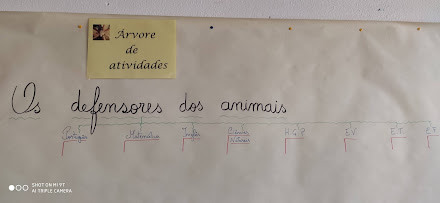 Árvore
de
atividades
Os defensores dos animais
Português Matemática Inglês Ciências H.G.P E.V E.T E.F
Naturais
SHOT ON MI 9T
AI TRIPLE CAMERA